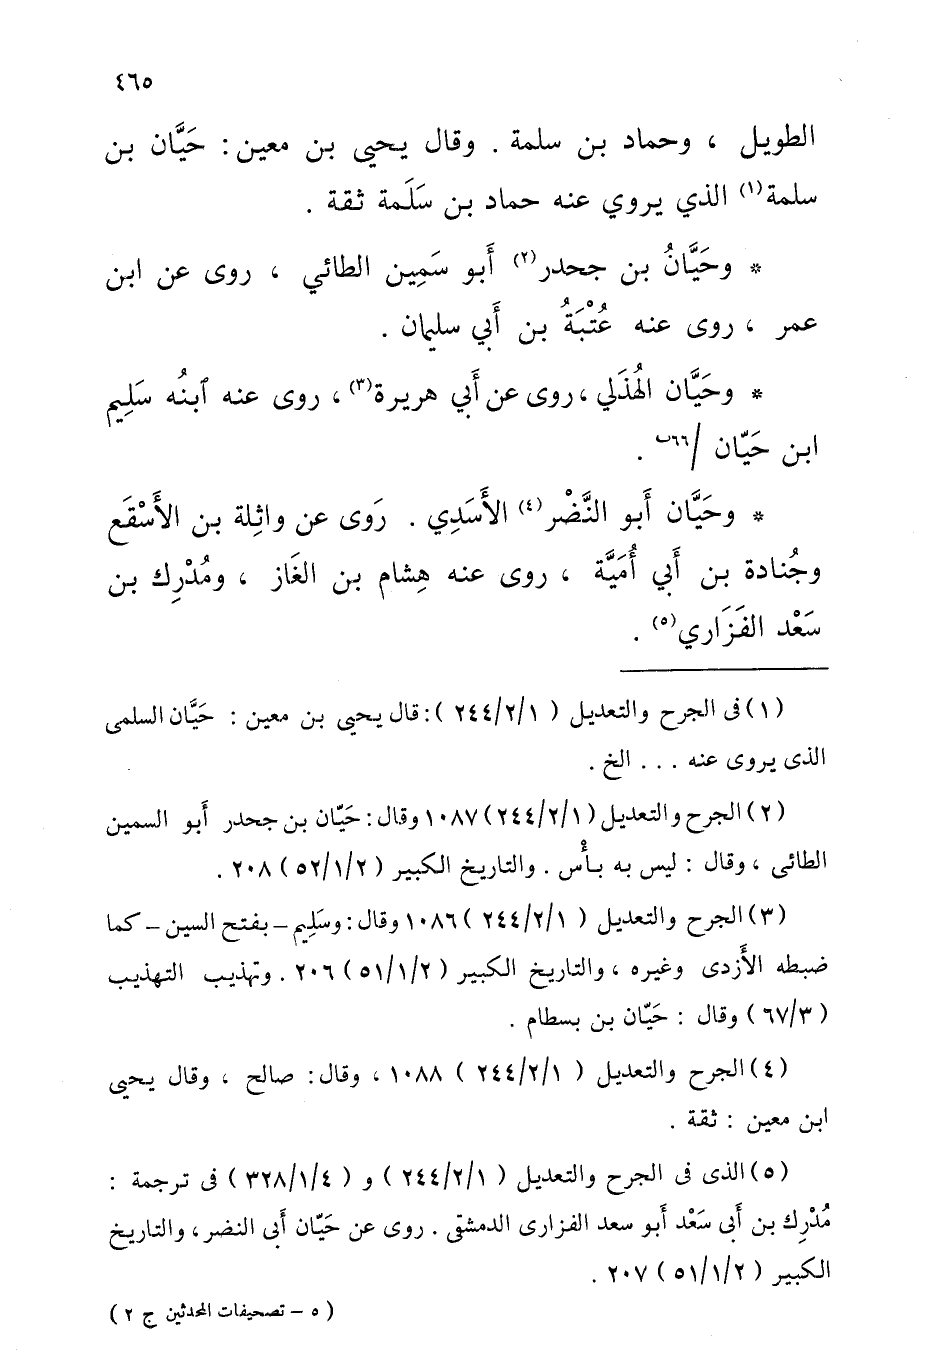 ٤٦٥
الطويل ، وحماد بن سلمة . وقال يحيى بن معين : حَيَّان بن
سلمة(١) الذي يروي عنه حماد بن سَلَمة ثقة .
* وحَيَّانُ بن جحدر(٢) أَبو سَمِين الطائي ، روى عن ابن
عمر ، روى عنه عُتْبَةُ بن أَبي سليمان .
* وحَيَّان الهُذَلي ، روى عن أَبي هريرة(٣) ، روى عنه ٱبنُه سَلِيم
ابن حَيّان /٦٦ب .
* وحَيَّان أَبو النَّضْر(٤) الأَسَدِي . رَوى عن واثِلة بن الأَسْقَع
وجُنادة بن أَبي أُمَيَّة ، روى عنه هِشام بن الغَاز ، ومُدْرِك بن
سَعْد الفَزَاري(٥) .
(١) فى الجرح والتعديل ( ٢٤٤/٢/١ ) : قال يحيى بن معين : حَيَّان السلمى
الذى يروى عنه . . . الخ .
(٢) الجرح والتعديل ( ٢٤٤/٢/١ ) ١٠٨٧ وقال : حَيّان بن جحدر أَبو السمين
الطائى ، وقال : ليس به بأْس . والتاريخ الكبير ( ٥٢/١/٢ ) ٢٠٨ .
(٣) الجرح والتعديل ( ٢٤٤/٢/١ ) ١٠٨٦ وقال : وسَلِيم – بفتح السين – كما
ضبطه الأَزدى وغيره ، والتاريخ الكبير ( ٥١/١/٢ ) ٢٠٦ . وتهذيب التهذيب
( ٦٧/٣ ) وقال : حَيّان بن بسطام .
(٤) الجرح والتعديل ( ٢٤٤/٢/١ ) ١٠٨٨ ، وقال : صالح ، وقال يحيى
ابن معين : ثقة .
(٥) الذى فى الجرح والتعديل ( ٢٤٤/٢/١ ) و ( ٣٢٨/١/٤ ) فى ترجمة :
مُدْرِك بن أَبى سَعْد أَبو سعد الفزارى الدمشقى . روى عن حَيّان أَبى النضر ، والتاريخ
الكبير ( ٥١/١/٢ ) ٢٠٧ .
( ٥ – تصحيفات المحدثين ج ٢ )